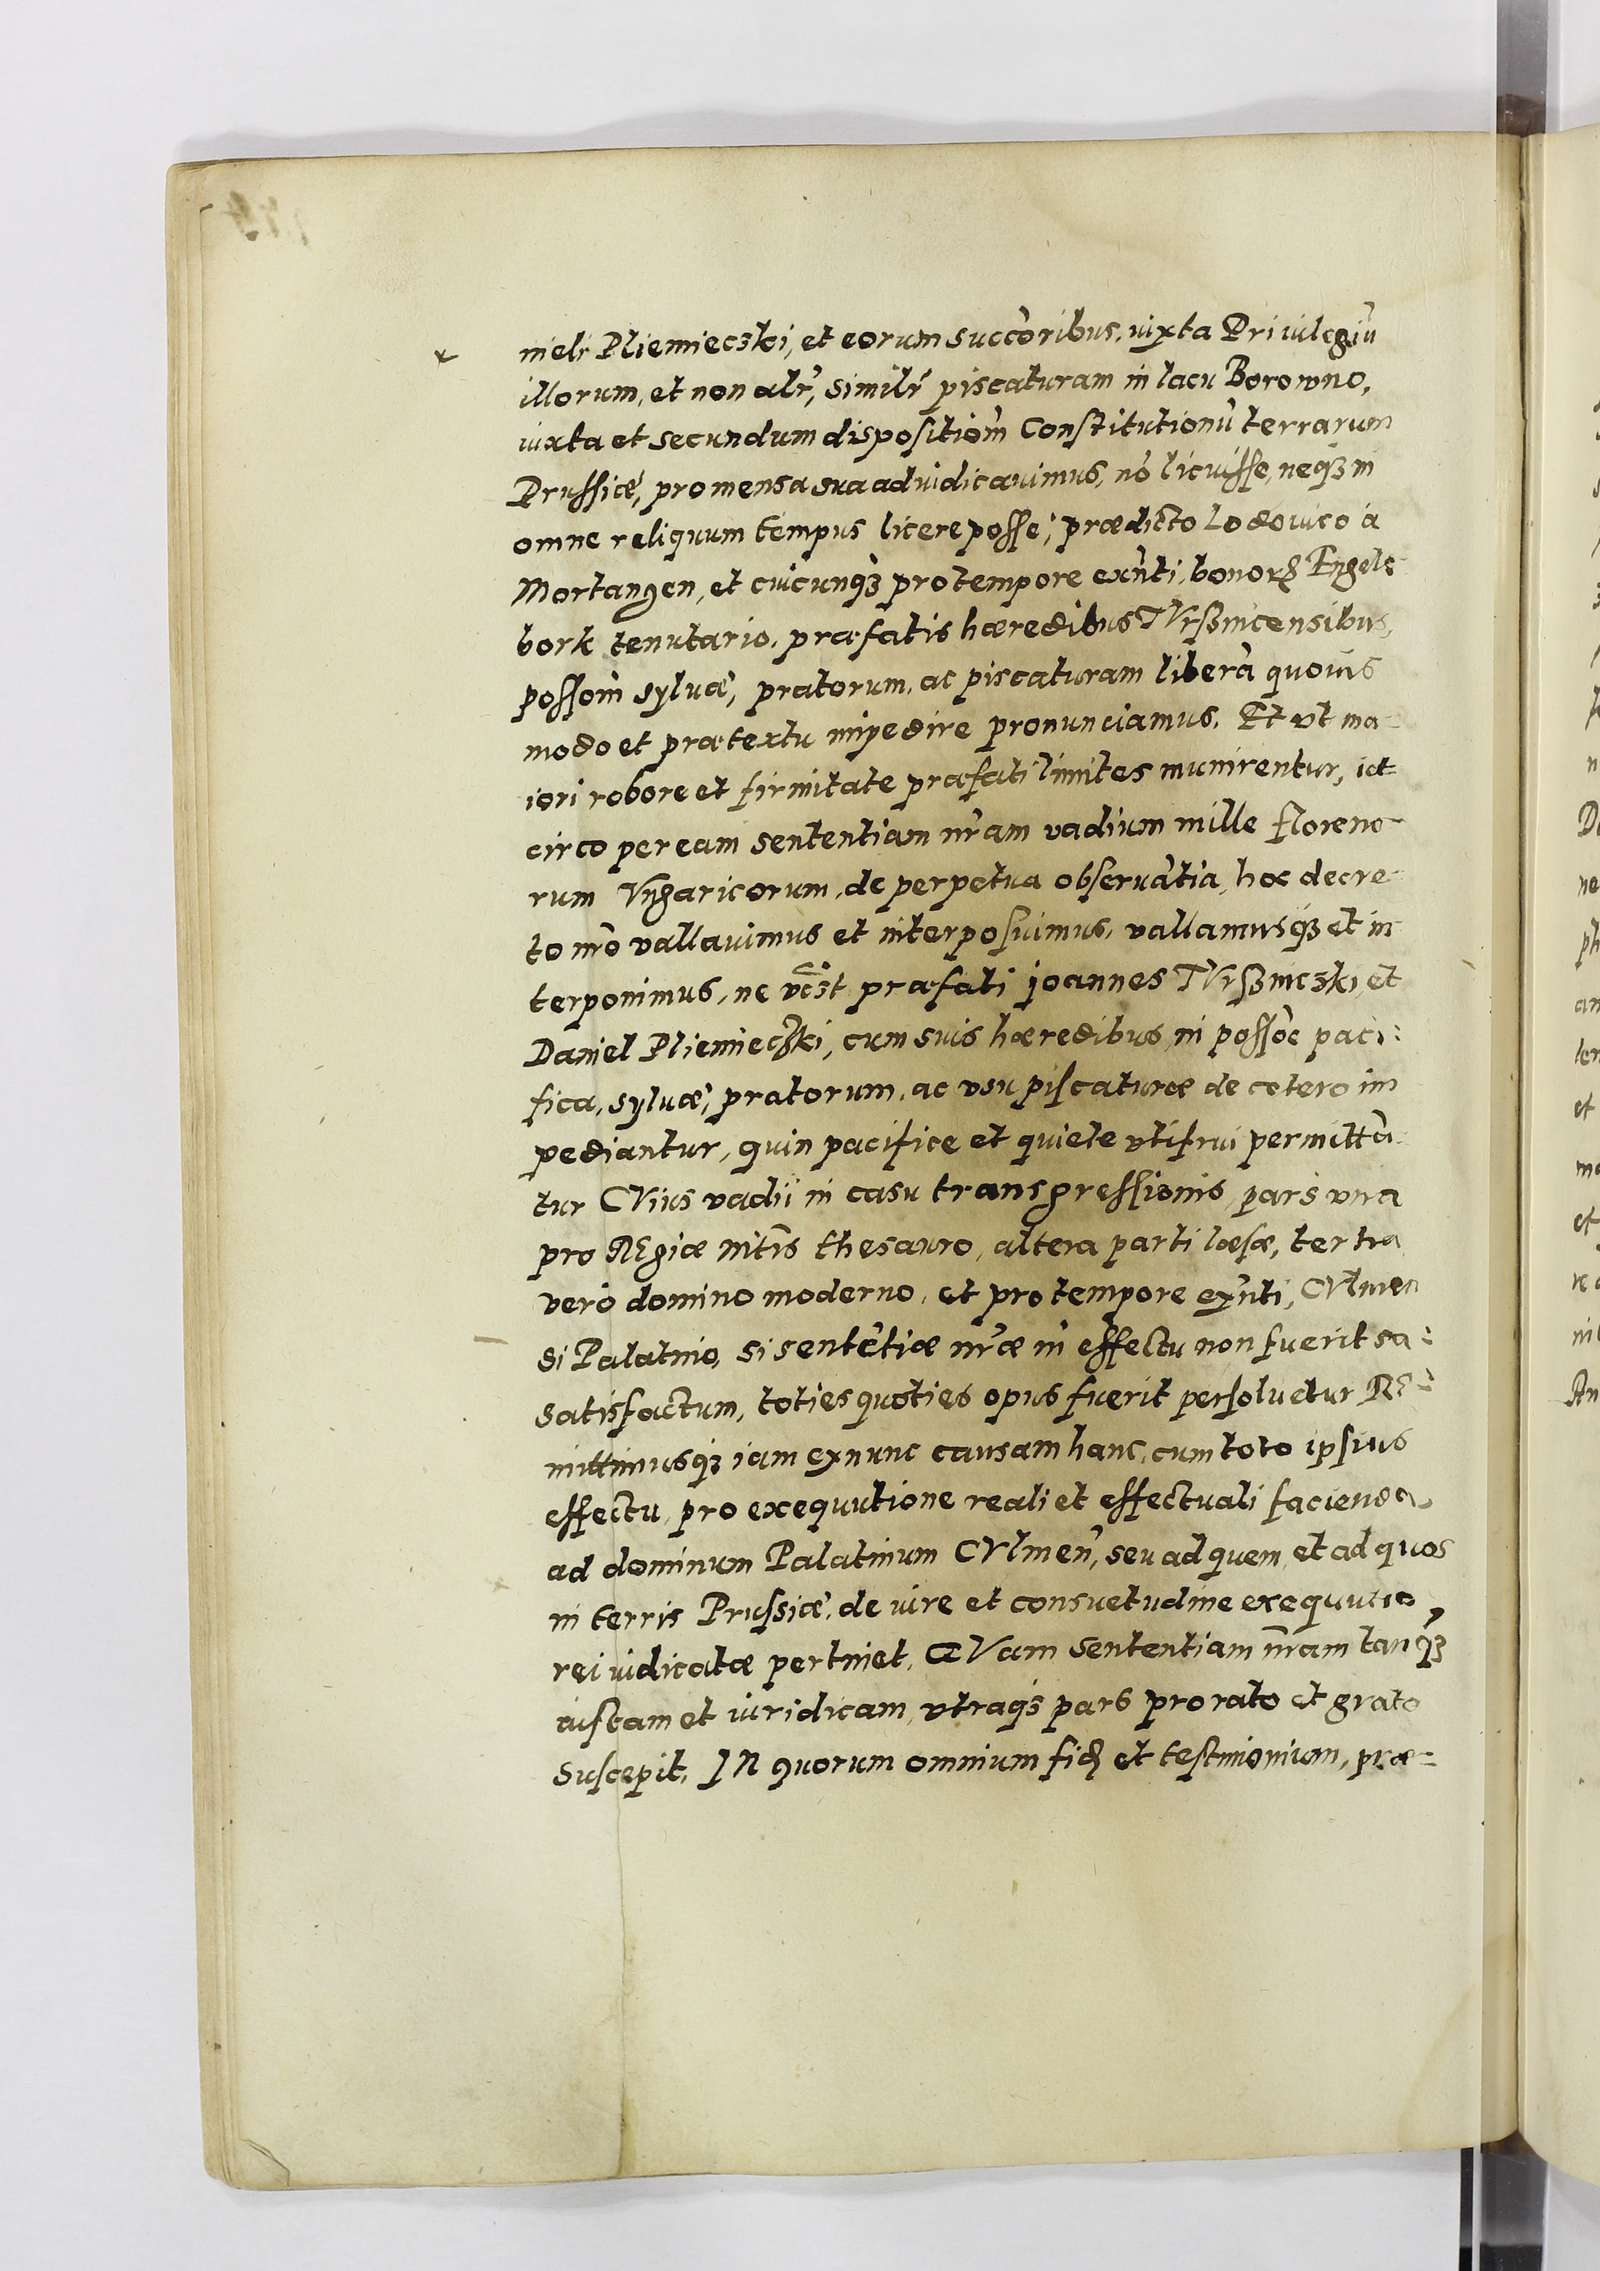 nieli Pliemieczki, et eorum succoribus. iuxta Priuilegiū
illorum, et non alr̃, similr̃ piscaturam in lacu Borowno,
iuxta et secundum dispositiom̃ Constitutionū terrarum
Prussiæ, pro mensa sua adiudicauimus, nõ licuisse, neqꝫ in
omne reliquum tempus licere posse, prædicto Lodouico à
Mortangen, et cuicunqꝫ pro tempore exñti, bonorꝫ Engels-
bork tenutario, præfatis hæredibus WrSznicensibus,
possom̃ syluæ, pratorum, ac piscaturam liberã quouis
modo et prætextu impedire pronunciamus. Et vt ma-
iori robore et firmitate præfati limites munirentur, ict
circo per eam sententiam nr̃am vadium mille floreno-
rum Vngaricorum, de perpetua obseruãtia, hoc decre-
to nr̃o vallauimus et interposuimus, vallamusqꝫ et in-
terponimus, ne præfati Joannes WrSzniczki, et
Daniel Pliemieczki, cum suis hæredibus in possoẽ paci:
fica, syluæ, pratorum, ac vsu piscaturæ de cetero im
pediantur, quin pacifice et quiete vtifrui permittã-
tur CVius vadii in casu transgressionis, pars vna
pro REgiæ mtis̃ thesauro, altera parti læsæ, tertia
vero domino moderno, et pro tempore exñti, CVlmen
di Palatino, si sentẽtiæ nr̃æ in effectu non fuerit sa:
satisfactum, toties quoties opus fuerit persoluetur RE:
mittimusqꝫ iam exnunc causam hanc, cum toto ipsius
effectu, pro exequutione reali et effectuali facienda,
ad dominum Palatinum CVlmeñ, seu ad quem, et ad quos
in terris Prussiæ, de iure et consuetudine exequutio,
rei iudicatæ pertinet, QVam sententiam nr̃am tanqꝫ
iustam et iuridicam, vtraqꝫ pars pro rato et grato
suscepit. IN quorum omnium fidꝫ et testimonium, præ-